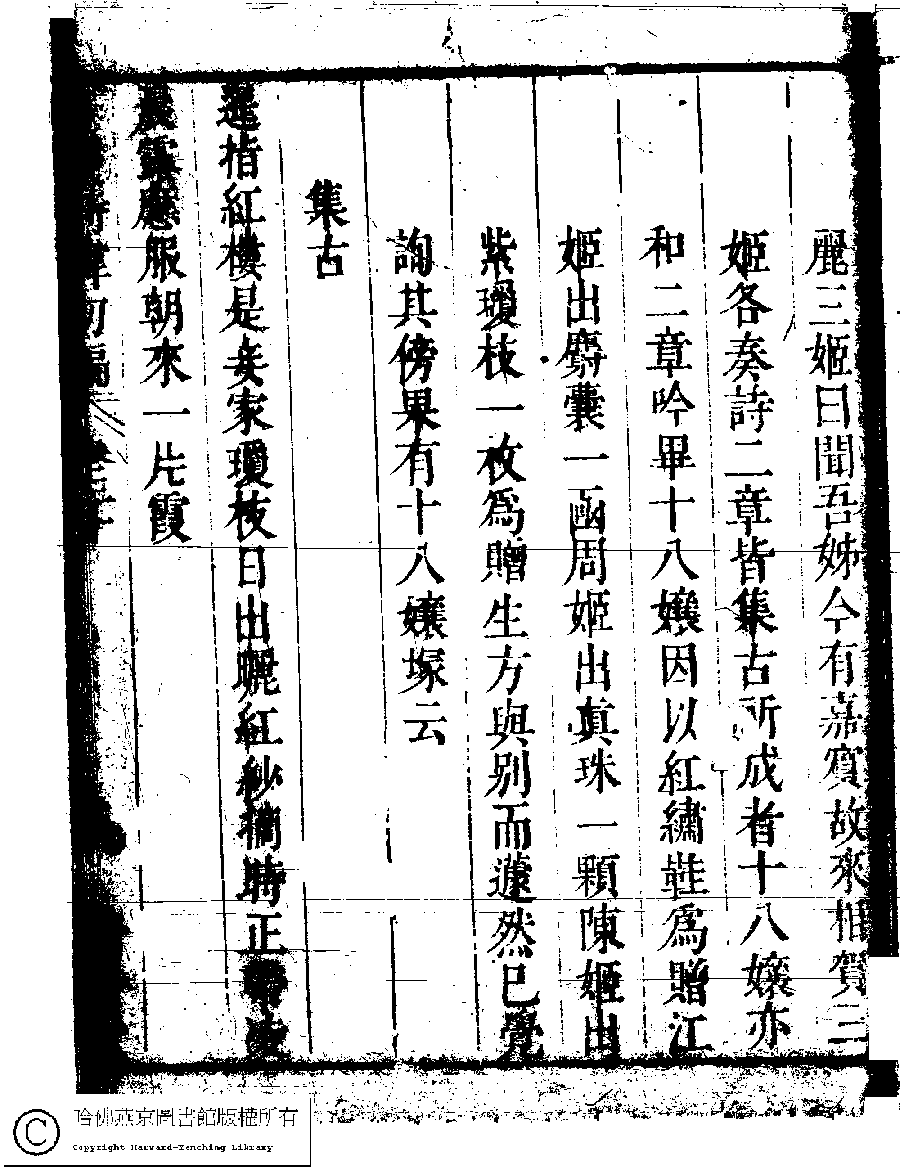 麗三姬曰聞吾姊今有嘉賓故來相賀三
姬各奏詩二章皆集古所成者十八孃亦
和二章吟畢十八孃因以紅繡鞋爲贈江
姬出麝囊一函周姬出真珠一顆陳姬出
紫瓊枝一枚爲贈生方與别而蘧然已覺
詢其傍果有十八孃塚云
集古
遙指紅樓是妾家瓊枝日出曬紅紗摘時正帶凌
晨露應服朝來一片霞
哈佛燕京圖書館版權所有
Copyright Harvard-Yenching Library